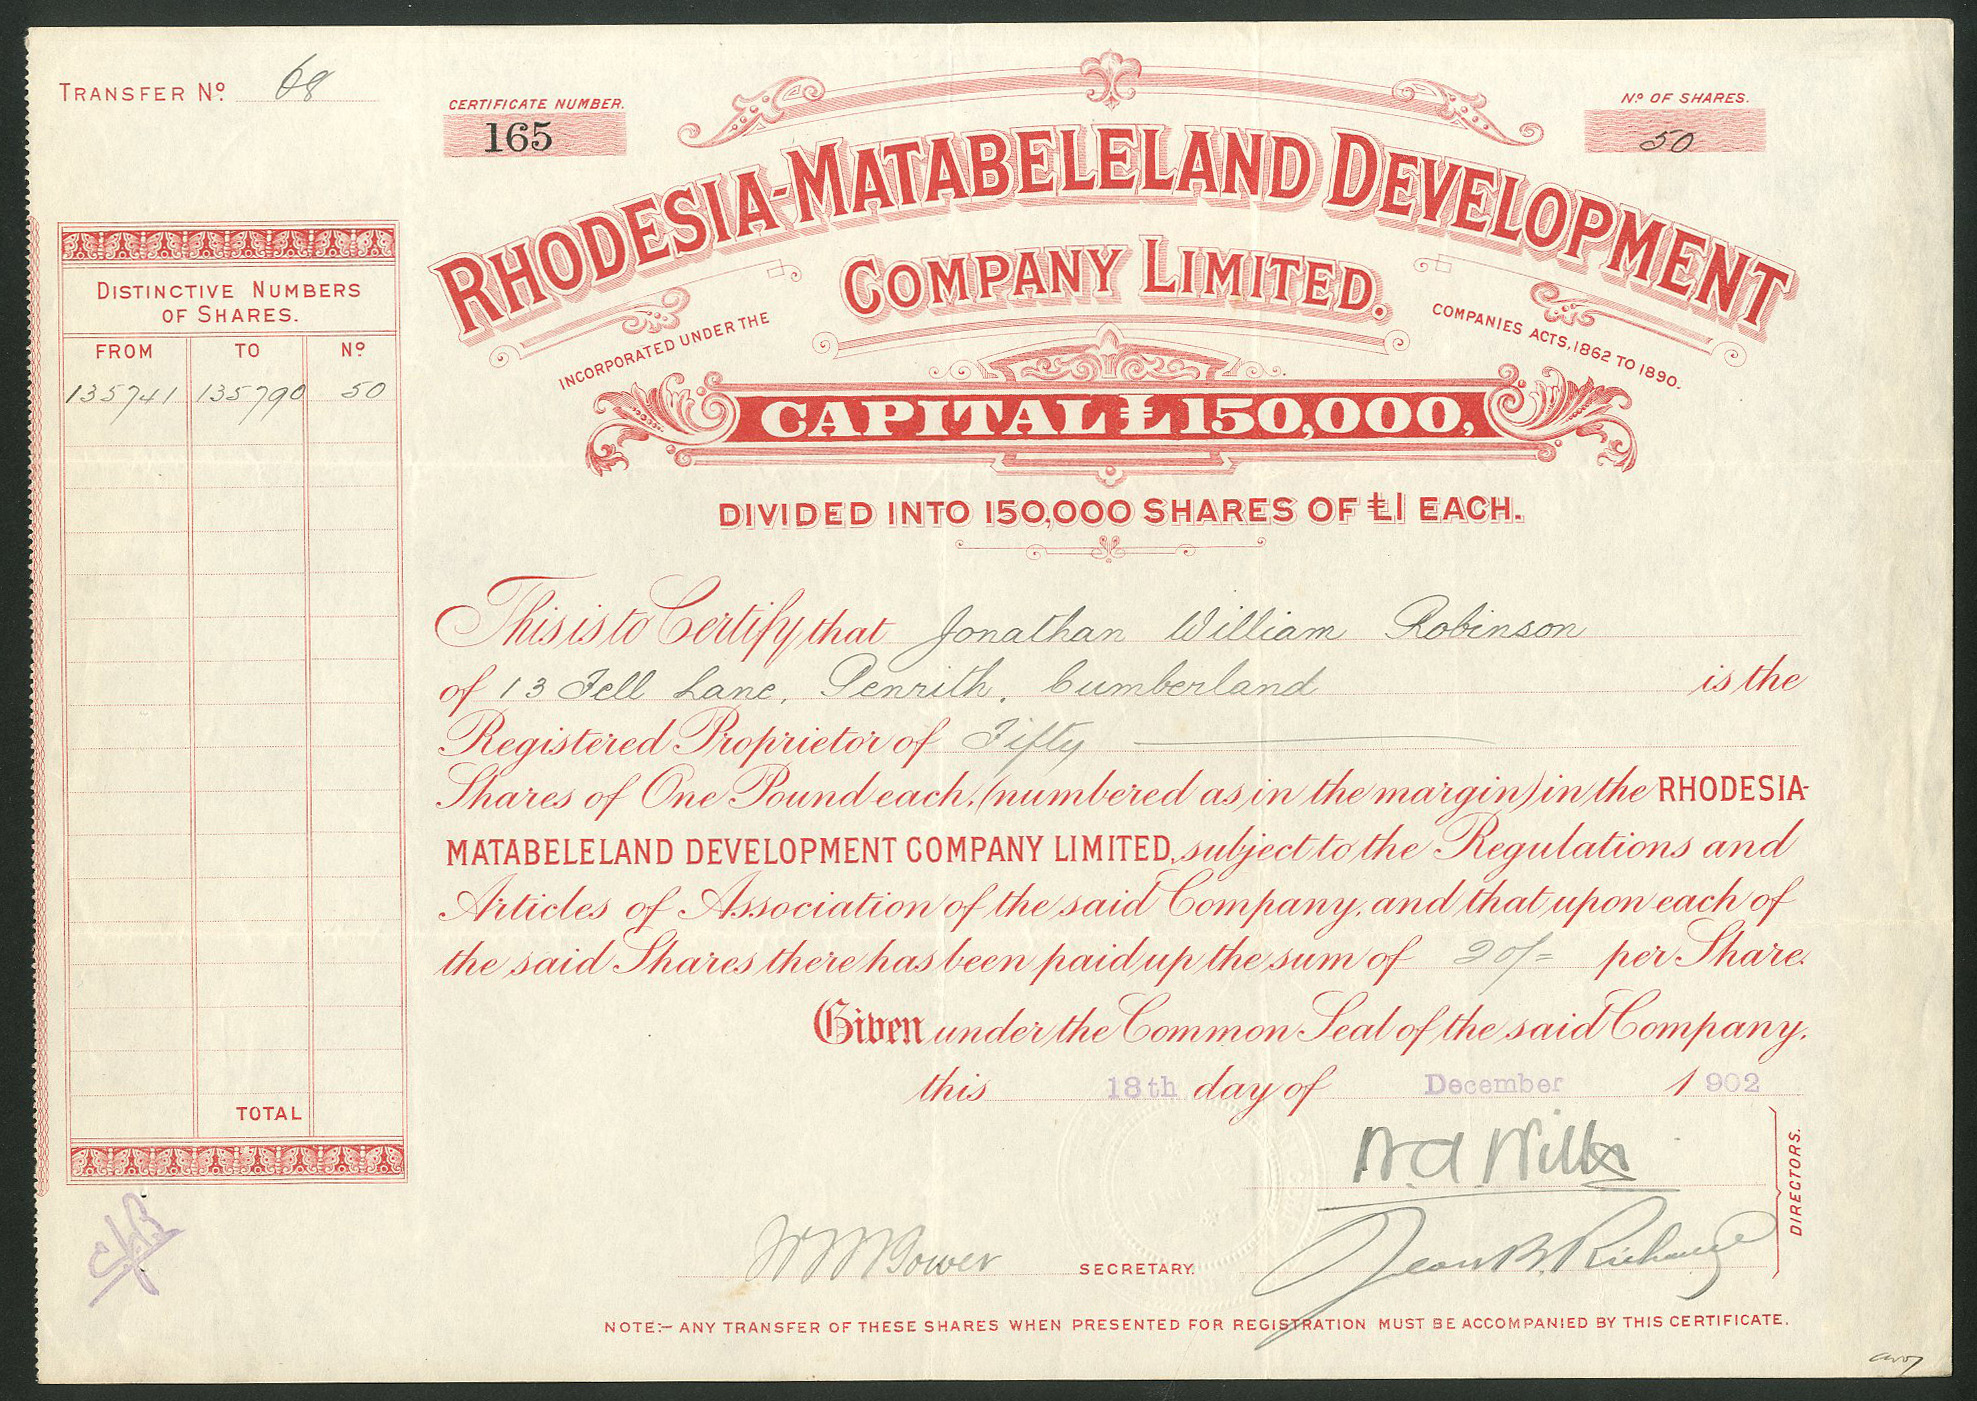 TRANSFER Nº 68
CERTIFICATE NUMBER.
165
Nº OF SHARES.
50
RHODESIA-MATABELELAND DEVELOPMENT
COMPANY LIMITED.
INCORPORATED UNDER THE COMPANIES ACTS, 1862 TO 1890.
CAPITAL £150,000,
DIVIDED INTO 150,000 SHARES OF £1 EACH.
DISTINCTIVE NUMBERS
OF SHARES.
FROM TO Nº
135741 135790 50
TOTAL
This is to Certify that Jonathan William Robinson
of 13 Fell Lane, Penrith, Cumberland is the
Registered Proprietor of Fifty
Shares of One Pound each, (numbered as in the margin) in the RHODESIA-
MATABELELAND DEVELOPMENT COMPANY LIMITED, subject to the Regulations and
Articles of Association of the said Company, and that upon each of
the said Shares there has been paid up the sum of 20/= per Share.
Given under the Common Seal of the said Company,
this 18th day of December 1902
W.A. Wills
DIRECTORS.
W W Bower SECRETARY.
NOTE:- ANY TRANSFER OF THESE SHARES WHEN PRESENTED FOR REGISTRATION MUST BE ACCOMPANIED BY THIS CERTIFICATE.